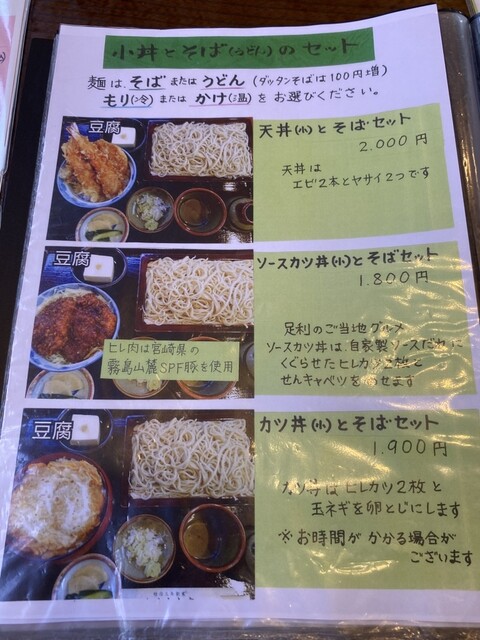 小丼とそば(うどん)のセット
麺は、そば または うどん (ダッタンそばは100円増)
もり(冷) または かけ(温) をお選びください。
豆腐
天丼(小)とそばセット
2.000 円
天丼は
エビ2本とヤサイ2つです
豆腐
ソースカツ丼(小)とそばセット
1.800 円
ヒレ肉は宮崎県の
霧島山麓SPF豚を使用
足利のご当地グルメ
ソースカツ丼は、自家製ソースだれに
くぐらせたヒレカツ2枚と
せんキャベツをのせます
豆腐
カツ丼(小)とそばセット
1.900 円
カツ丼はヒレカツ2枚と
玉ネギを卵とじにします
※お時間がかかる場合が
ございます